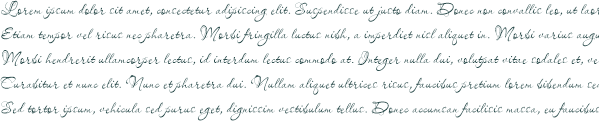 Lorem ipsum dolor sit amet, consectetur adipiscing elit. Suspendisse ut justo diam. Donec non convallis leo, ut laor
Etiam tempor vel risus nec pharetra. Morbi fringilla luctus nibh, a imperdiet nisl aliquet in. Morbi varius augu
Morbi hendrerit ullamcorper lectus, id interdum lectus commodo at. Integer nulla dui, volutpat vitae sodales et, ve
Curabitur et nunc elit. Nunc et pharetra dui. Nullam aliquet ultrices risus, faucibus pretium lorem bibendum se
Sed tortor ipsum, vehicula sed purus eget, dignissim vestibulum tellus. Donec accumsan facilisis massa, eu faucibus